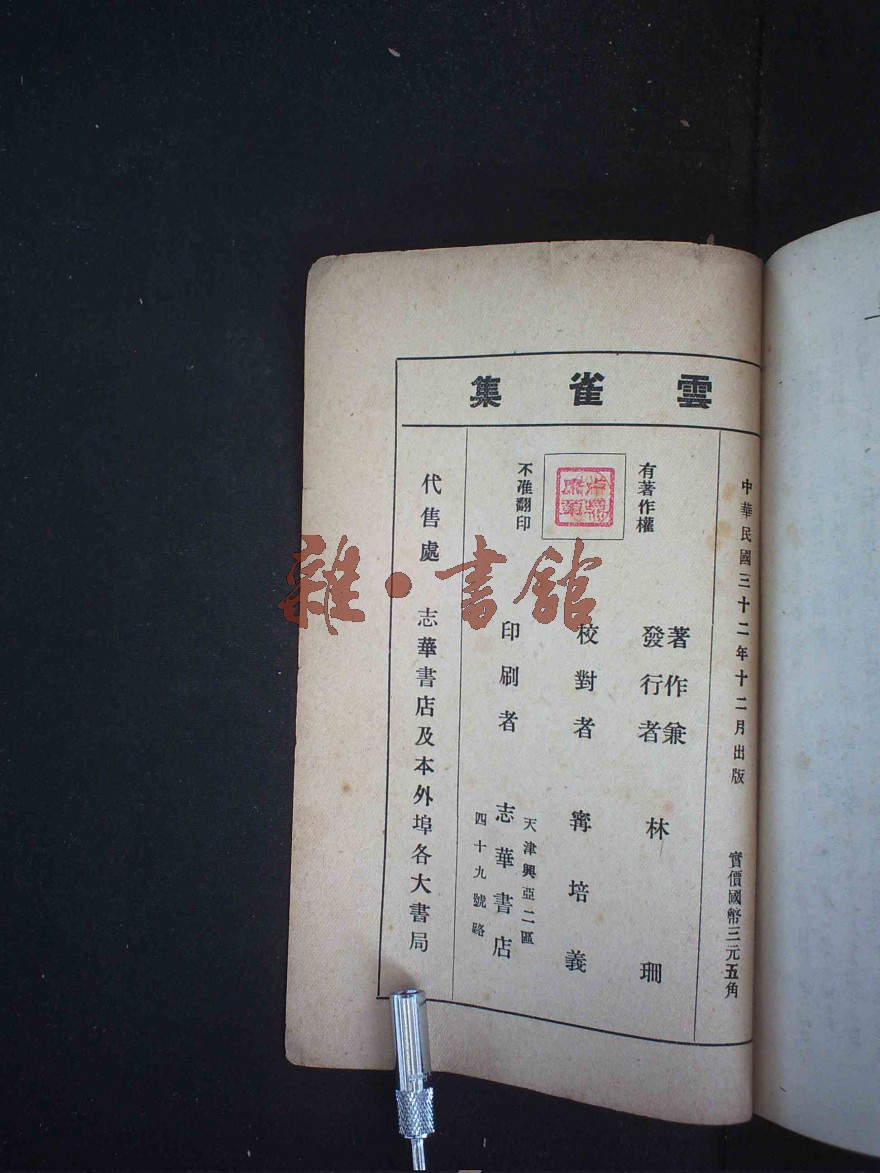 雲雀集
中華民國三十二年十二月出版
實價國幣三元五角
有著作權
不准翻印
著作兼
發行者
林珊
校對者
寗培義
印刷者
天津興亞二區
志華書店
四十九號路
代售處
志華書店及本外埠各大書局
雜·書館